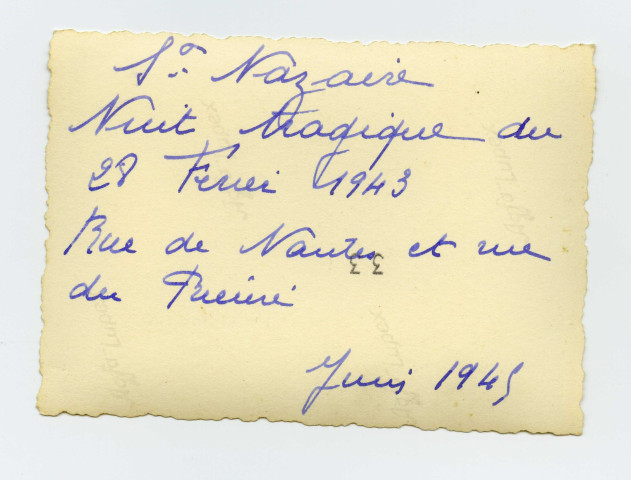 St. Nazaire
Nuit tragique du
28 Ferier 1943
Rue de Nantes et rue
33
du Prieuré
Juin 1945